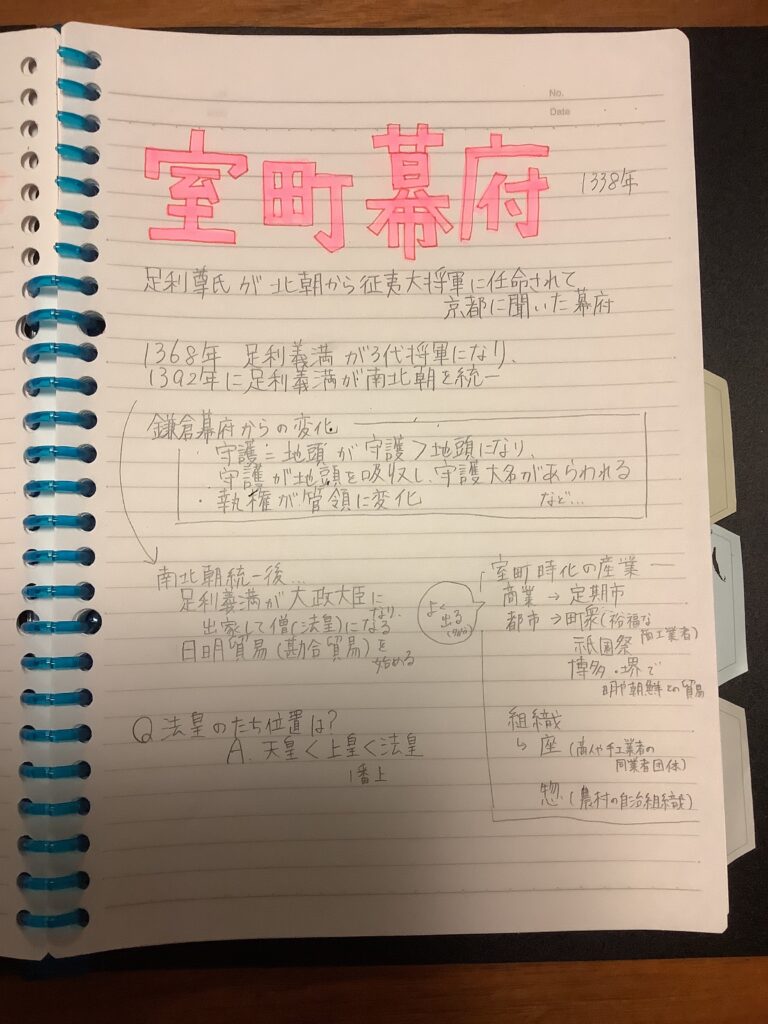 No.
Date
室町幕府 1338年
足利尊氏が北朝から征夷大将軍に任命されて
京都に聞いた幕府
1368年 足利義満が3代将軍になり、
1392年に足利義満が南北朝を統一
鎌倉幕府からの変化
・守護≒地頭が守護>地頭になり、
守護が地頭を吸収し、守護大名があらわれる
・執権が管領に変化 など…
南北朝統一後…
足利義満が大政大臣になり、
出家して僧(法皇)になる
日明貿易(勘合貿易)を始める
Q 法皇のたち位置は?
A. 天皇<上皇<法皇
1番上
よく
出る
(多分)
室町時化の産業
商業→定期市
都市→町衆(裕福な
商工業者)
祇園祭
博多・堺で
明や朝鮮との貿易
組織
↳座(商人や手工業者の
同業者団体)
惣(農村の自治組織)